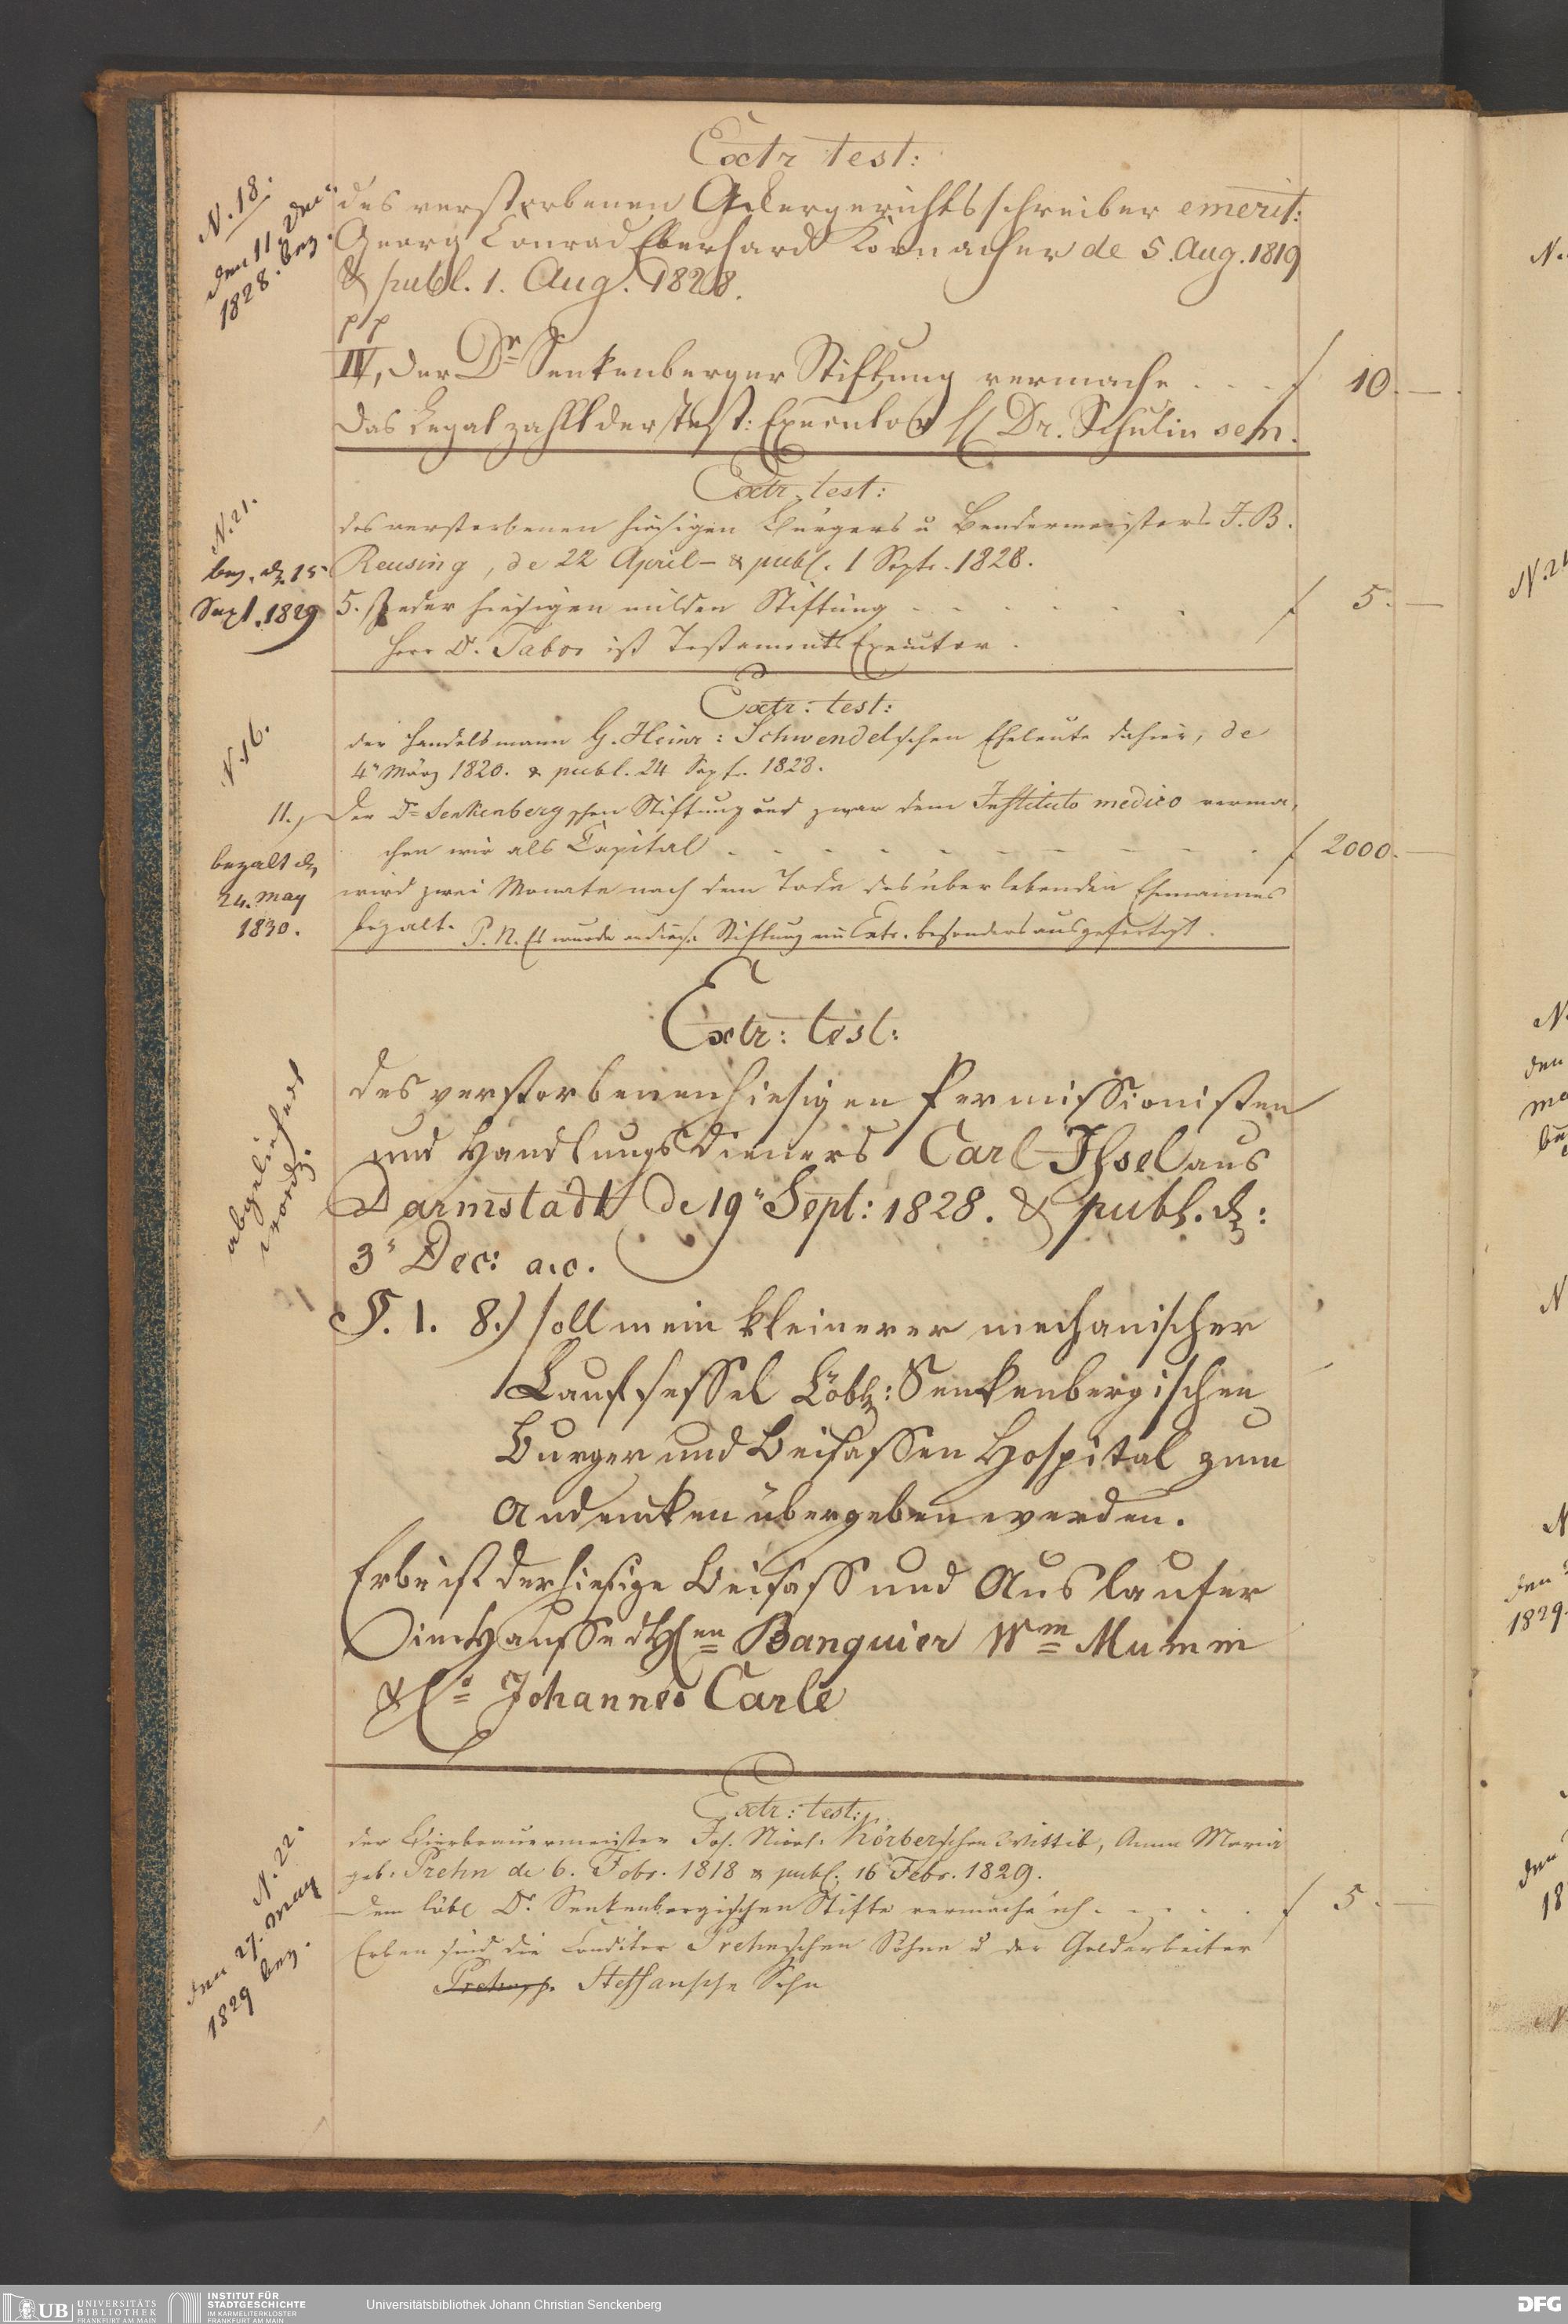 Extr test:
N. 18.
den 11 Dec.
1828. bez.
des verstorbenen Ackergerichtsschreiber emerit:
Georg Conrad Eberhard Kornacher de 5. Aug. 1819
& publ. 1. Aug. 1828.
pp
IV, der Dr Senkenberger Stiftung vermache . . . f 10. —
das Legat zahlt der Test: Executor H Dr. Schulin sen.
Extr. test:
N. 21.
bez. d. 15
Sept. 1829
des verstorbenen hiesigen Bürgers u Bendermeisters J. B.
Reusing, de 22 April – & publ. 1 Sept. 1828.
5. Jeder hiesigen milden Stiftung - - - - - f 5. —
Herr Dr. Tabor ist Testaments Executor.
Extr: test:
N. 16.
der Handelsmann G. Heinr: Schwendelschen Eheleute dahier, de
4n März 1820. & publ. 24 Sept. 1828.
11., Der Dr Senkenbergschen Stiftung und zwar dem Instituto medico verma-
chen wir als Capital - - - - - - - - f 2000. —
bezalt d.
24. May
1830.
wird zwei Monate nach dem Tode des überlebenden Ehemannes
bezalt. P. N. Es wurde an diese Stiftung ein Extr. besonders ausgefertigt.
Extr: test:
abgeliefert
word.
des verstorbenen hiesigen Permissionisten
und Handlungsdieners Carl Ihsel aus
Darmstadt de 19n Sept: 1828. & publ. d:
3n Dec: a. c.
§. 1. 8.) soll mein kleinerer mechanischer
Laufsessel Löbl: Senkenbergischen
Burger und Beisassen Hospital zum
Andenken übergeben werden.
Erbe ist der hiesige Beisass und Auslaufer
im Hausse d Hen Banquier Wm Mumm
& Co Johannes Carle
Extr: test:
N. 22.
den 27. May
1829 bez.
der Bierbrauermeister Joh. Nicol. Körberschen Wittib, Anna Maria
geb. Prehn de 6. Febr. 1818 & publ. 16 Febr. 1829.
Dem löbl Dr. Senkenbergischen Stifte vermache ich . . . . f 5. —
Erben sind die Conditor Prehnschen Söhne u der Goldarbeiter
Prehnsch. Steffansche Sohn
N.
N. 21
N.
den
ma
be
N
N
den
1829.
den
18
N
UB UNIVERSITÄTS
BIBLIOTHEK
FRANKFURT AM MAIN
INSTITUT FÜR
STADTGESCHICHTE
IM KARMELITERKLOSTER
FRANKFURT AM MAIN
Universitätsbibliothek Johann Christian Senckenberg
DFG